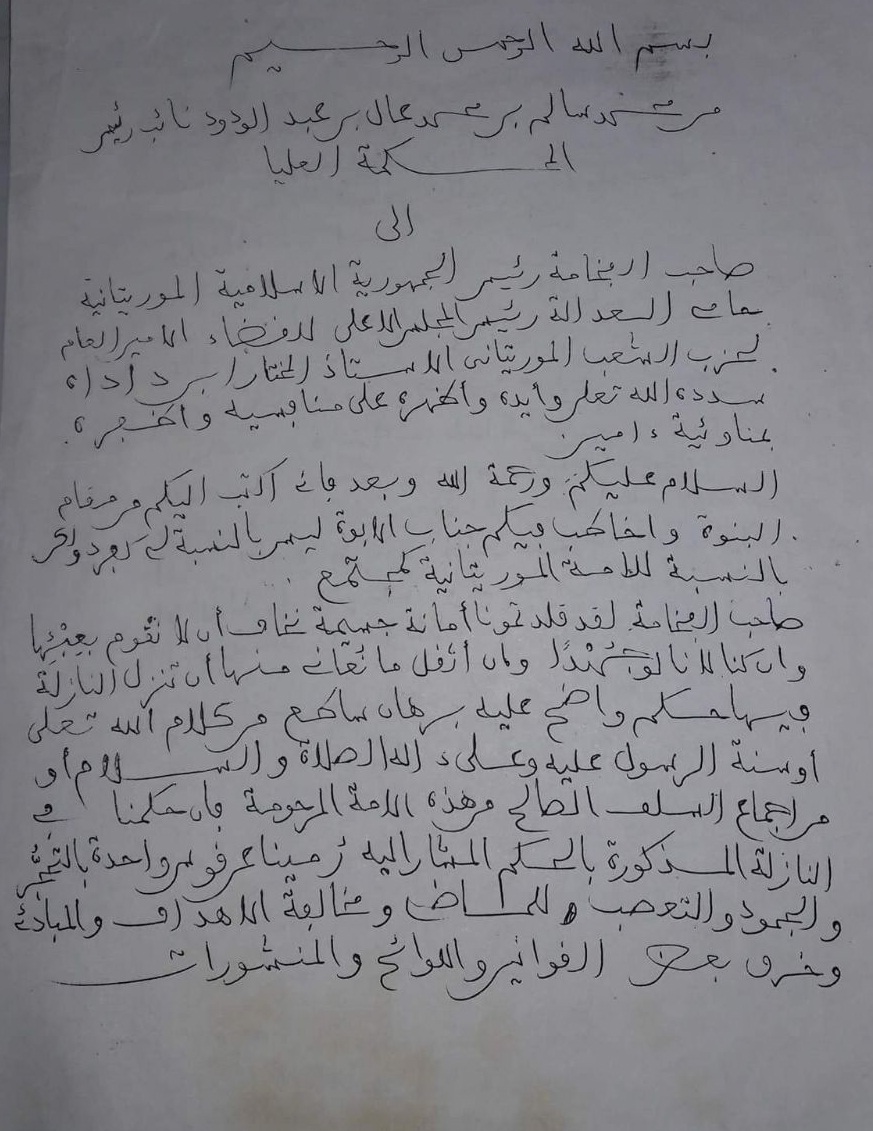 بسم الله الرحمن الرحيم
من محمد سالم بن محمد عال بن عبد الودود نائب رئيس
المحكمة العليا
الى
صاحب الفخامة رئيس الجمهورية الاسلامية الموريتانية
حامى العدالة رئيس المجلس الاعلى للقضاء الامين العام
لحزب الشعب الموريتانى الاستاذ المختار بن داداه
سدده الله تعلى وأيده وأظهره على منافسيه وأظفره
بمناوئيه ءامين
السلام عليكم ورحمة الله وبعد فانى أكتب اليكم من مقام
البنوة واخاطب فيكم جناب الابوة ليس بالنسبة لى كفرد ولكن
بالنسبة للامة الموريتانية كمجتمع
صاحب الفخامة لقد قلدتمونا أمانة جسيمة نخاف أن لا نقوم بعبئها
وان كنا لا نالو جُهْدًا وان أثقل ما نعانى منها أن تنزل النازلة
فيها حكم واضح عليه برهان ساطع من كلام الله تعلى
أو سنة الرسول عليه وعلىء اله الصلاة والسلام أو
من اجماع السلف الصالح من هذه الامة المرحومة فان حكمنا فى
النازلة المذكورة بالحكم المشار اليه رُمينا عن قوس واحدة بالتحجُّر
والجمود والتعصب للماضى ومخالفة الاهداف والمبادئ
وخرق بعض القوانين واللوائح والمنشورات